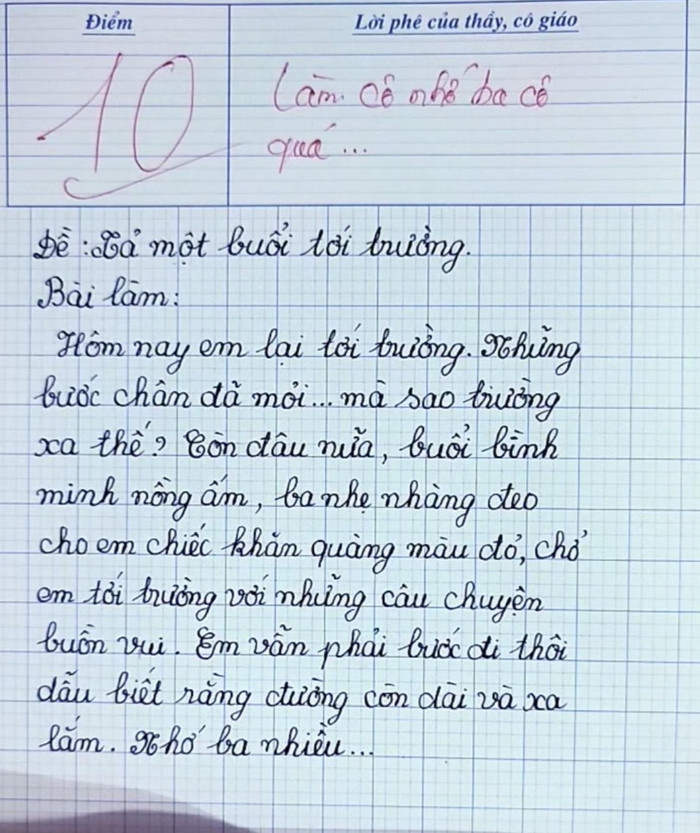 Điểm
Lời phê của thầy, cô giáo
10
Làm cô nhớ ba cô
quá...
Đề: Tả một buổi tới trường.
Bài làm:
Hôm nay em lại tới trường. Những
bước chân đã mỏi... mà sao trường
xa thế? Còn đâu nữa, buổi bình
minh nồng ấm, ba nhẹ nhàng đeo
cho em chiếc khăn quàng màu đỏ, chở
em tới trường với những câu chuyện
buồn vui. Em vẫn phải bước đi thôi
dẫu biết rằng đường còn dài và xa
lắm. Nhớ ba nhiều...